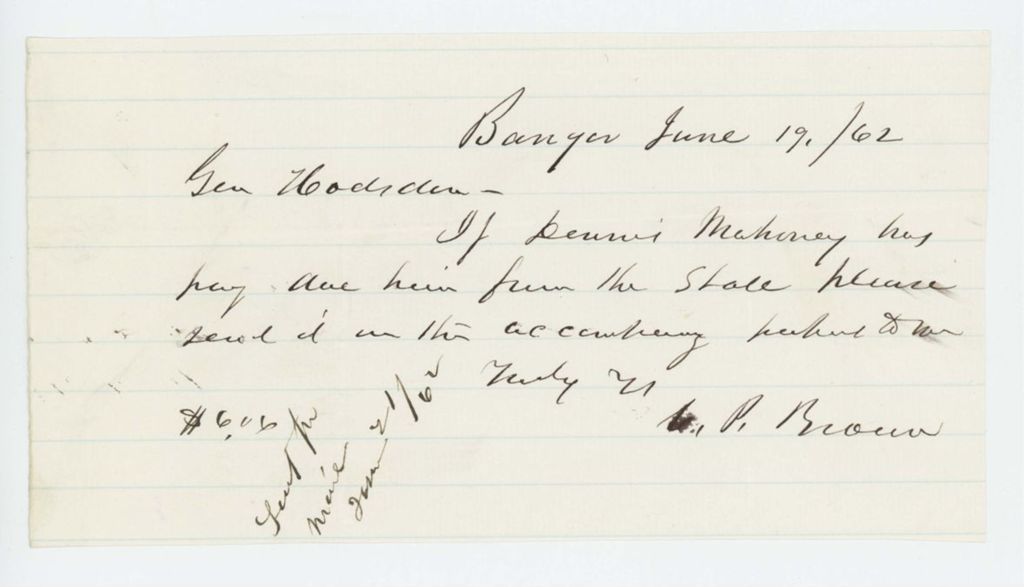 Bangor June 19, /62
Gen Hodsdon –
If Dennis Mahoney has
pay due him from the State please
send it in the accompanying to me
Truly Yr
P. Brown
$6.06
Sent per
mail
June 21/62